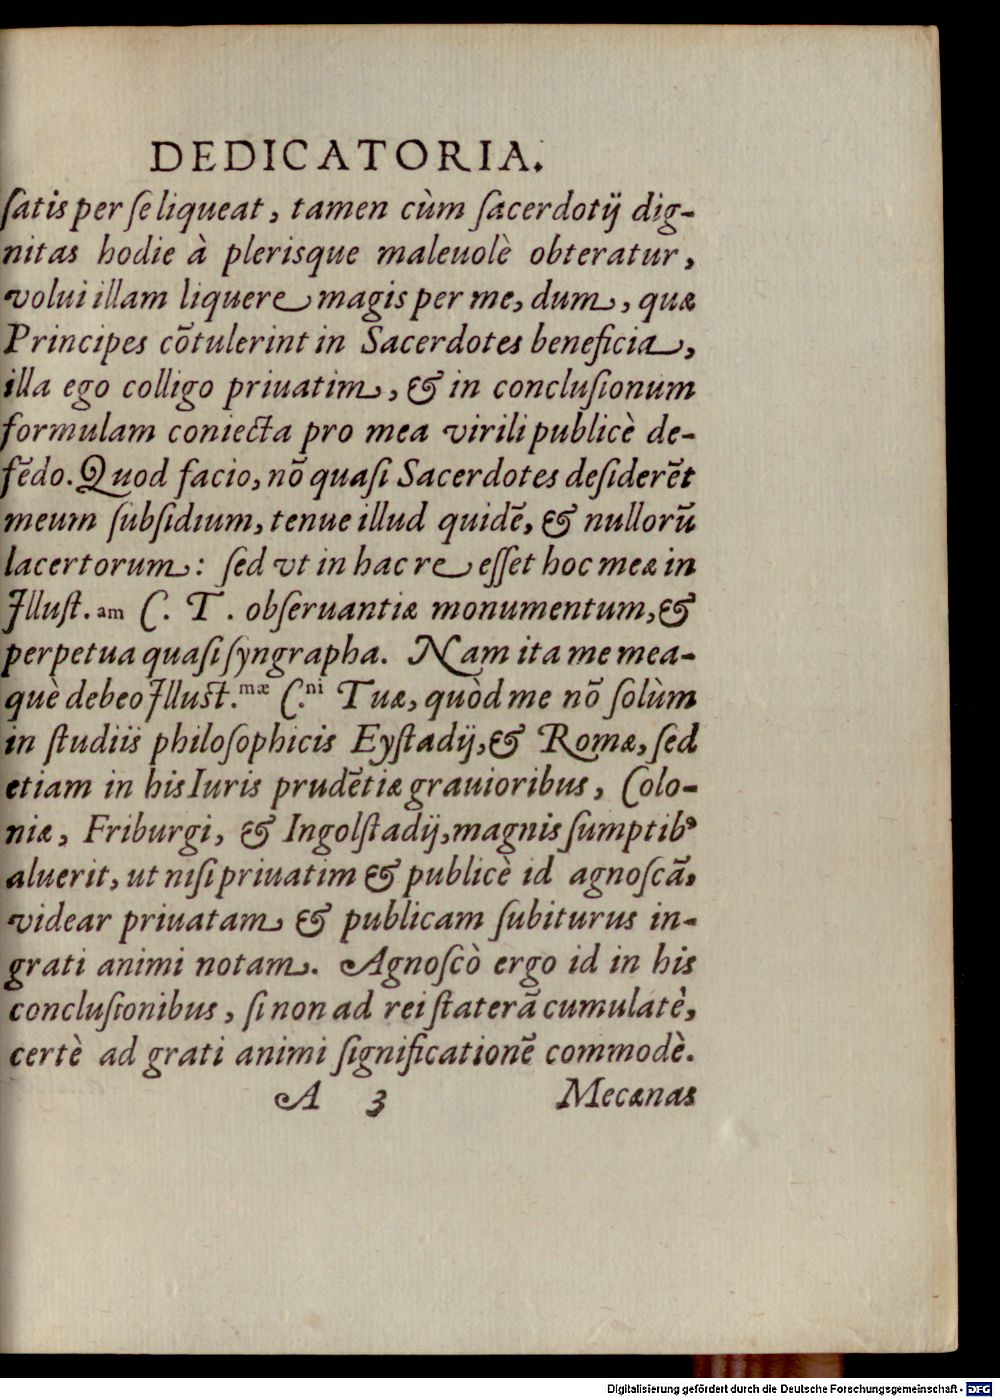 DEDICATORIA.
ſatis per ſe liqueat, tamen cùm ſacerdotij dig-
nitas hodie à plerisque maleuolè obteratur,
volui illam liquere magis per me, dum, quæ
Principes cõtulerint in Sacerdotes beneficia,
illa ego colligo priuatim, & in concluſionum
formulam coniecta pro mea virili publicè de-
fẽdo. Quod facio, nõ quaſi Sacerdotes deſiderẽt
meum ſubſidium, tenue illud quidẽ, & nullorũ
lacertorum: ſed vt in hac re eſſet hoc meæ in
Illuſt.am C. T. obſeruantiæ monumentum, &
perpetua quaſi ſyngrapha. Nam ita me mea-
què debeo Illust.mæ C.ni Tuæ, quòd me nõ ſolùm
in ſtudiis philoſophicis Eyſtadij, & Romæ, ſed
etiam in his Iuris prudẽtiæ grauioribus, Colo-
niæ, Friburgi, & Ingolſtadij, magnis ſumptibꝰ
aluerit, ut niſi priuatim & publicè id agnoſcã,
videar priuatam & publicam ſubiturus in-
grati animi notam. Agnoſcò ergo id in his
concluſionibus, ſi non ad rei ſtaterã cumulatè,
certè ad grati animi ſignificationẽ commodè.
A 3 Mecænas
Digitalisierung gefördert durch die Deutsche Forschungsgemeinschaft - DFG